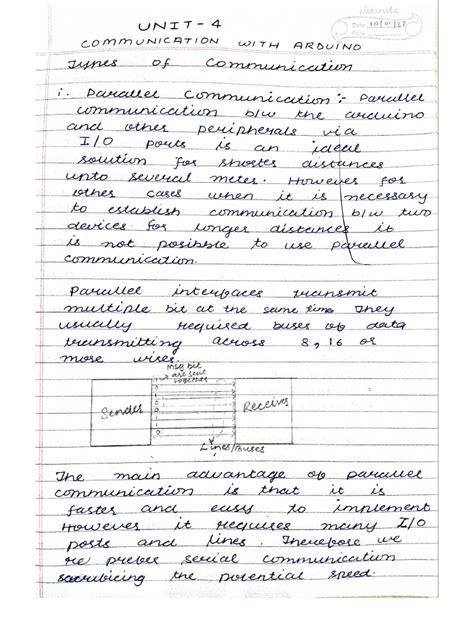 UNIT-4
Date 10/01/23
COMMUNICATION WITH ARDUINO
Types of Communication
i. Parallel Communication:- Parallel
communication b/w the arduino
and other peripherals via
I/O ports is an ideal
solution for shorter distances
upto several meter. However for
other cases when it is necessary
to establish communication b/w two
devices for longer distances it
is not possible to use parallel
communication.
Parallel interfaces transmit
multiple bit at the same time They
usually required buses of data
transmitting across 8, 16 or
more wires.
Msg bit
are sent
together
Sender
Receiver
Lines/Buses
The main advantage of parallel
communication is that it is
faster and easy to implement
However it requires many I/O
ports and lines. Therefore we
re prefer serial communication
sacrificing the potential speed.